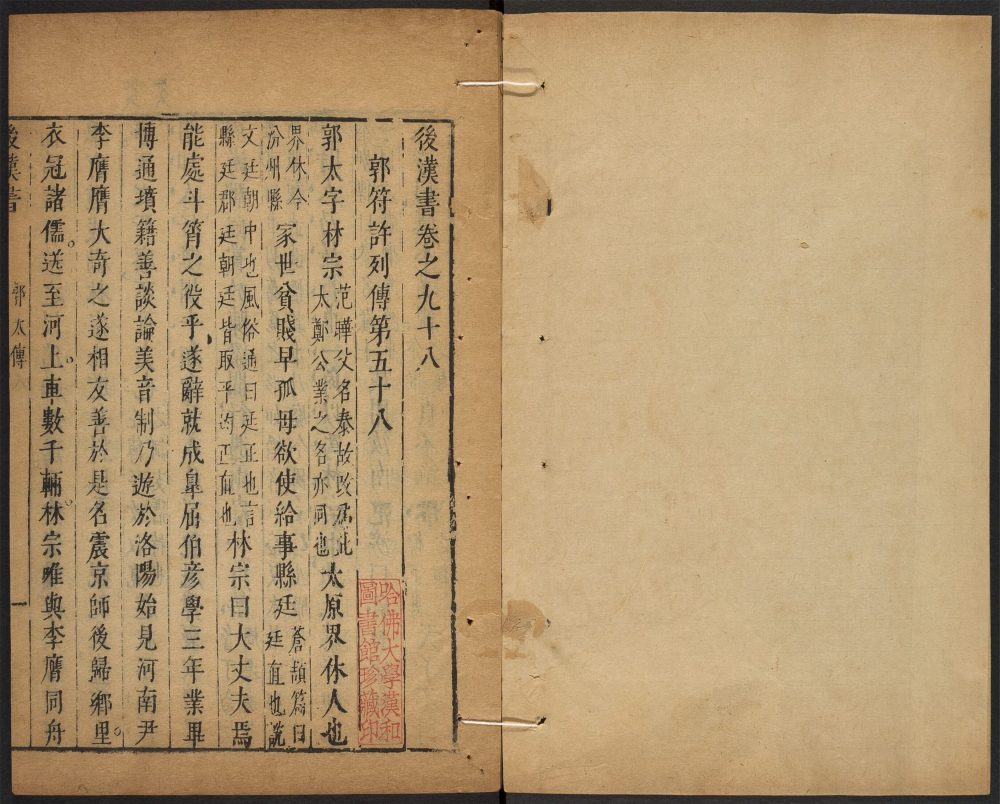 後漢書卷之九十八
郭符許列傳第五十八
郭太字林宗范曄父名泰故改爲此太鄭公業之名亦同也太原界休人也
界休今汾州縣家世貧賤早孤母欲使給事縣廷蒼頡篇曰廷直也說
文廷朝中也風俗通曰廷正也言縣廷郡廷朝廷皆取平均正直也林宗曰大丈夫焉
能處斗筲之役乎遂辭就成皐屈伯彦學三年業畢
博通墳籍善談論美音制乃遊於洛陽始見河南尹
李膺膺大奇之遂相友善於是名震京師後歸鄉里。
衣冠諸儒。送至河上。車數千輛。林宗唯與李膺同舟
後漢書 郭太傳 一
哈佛大學漢和
圖書館珍藏印